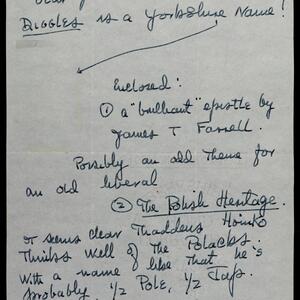 Diggles is a Yorkshire Name!
Enclosed:
① a "brilliant" epistle by
James T Farrell.
Possibly an odd theme for
an old liberal
② The Polish Heritage.
it seems clear Thaddeus
Thinks well of the Polacks.
With a name like that he's
probably ½ Pole, ½ Jap.